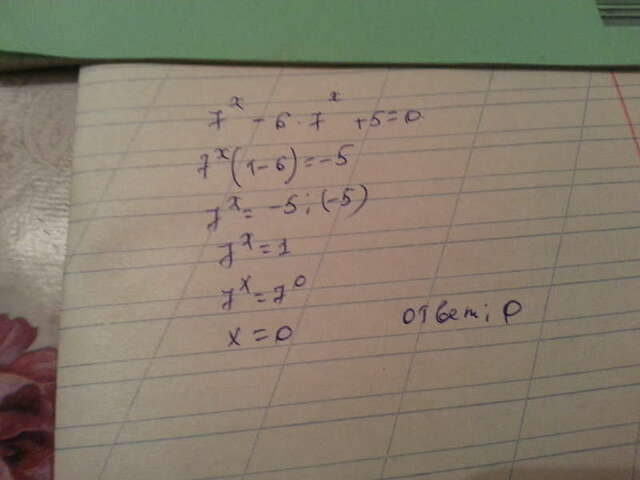 7^x - 6 · 7^x + 5 = 0
7^x (1 - 6) = -5
7^x = -5 : (-5)
7^x = 1
7^x = 7^0
x = 0
ответ: 0